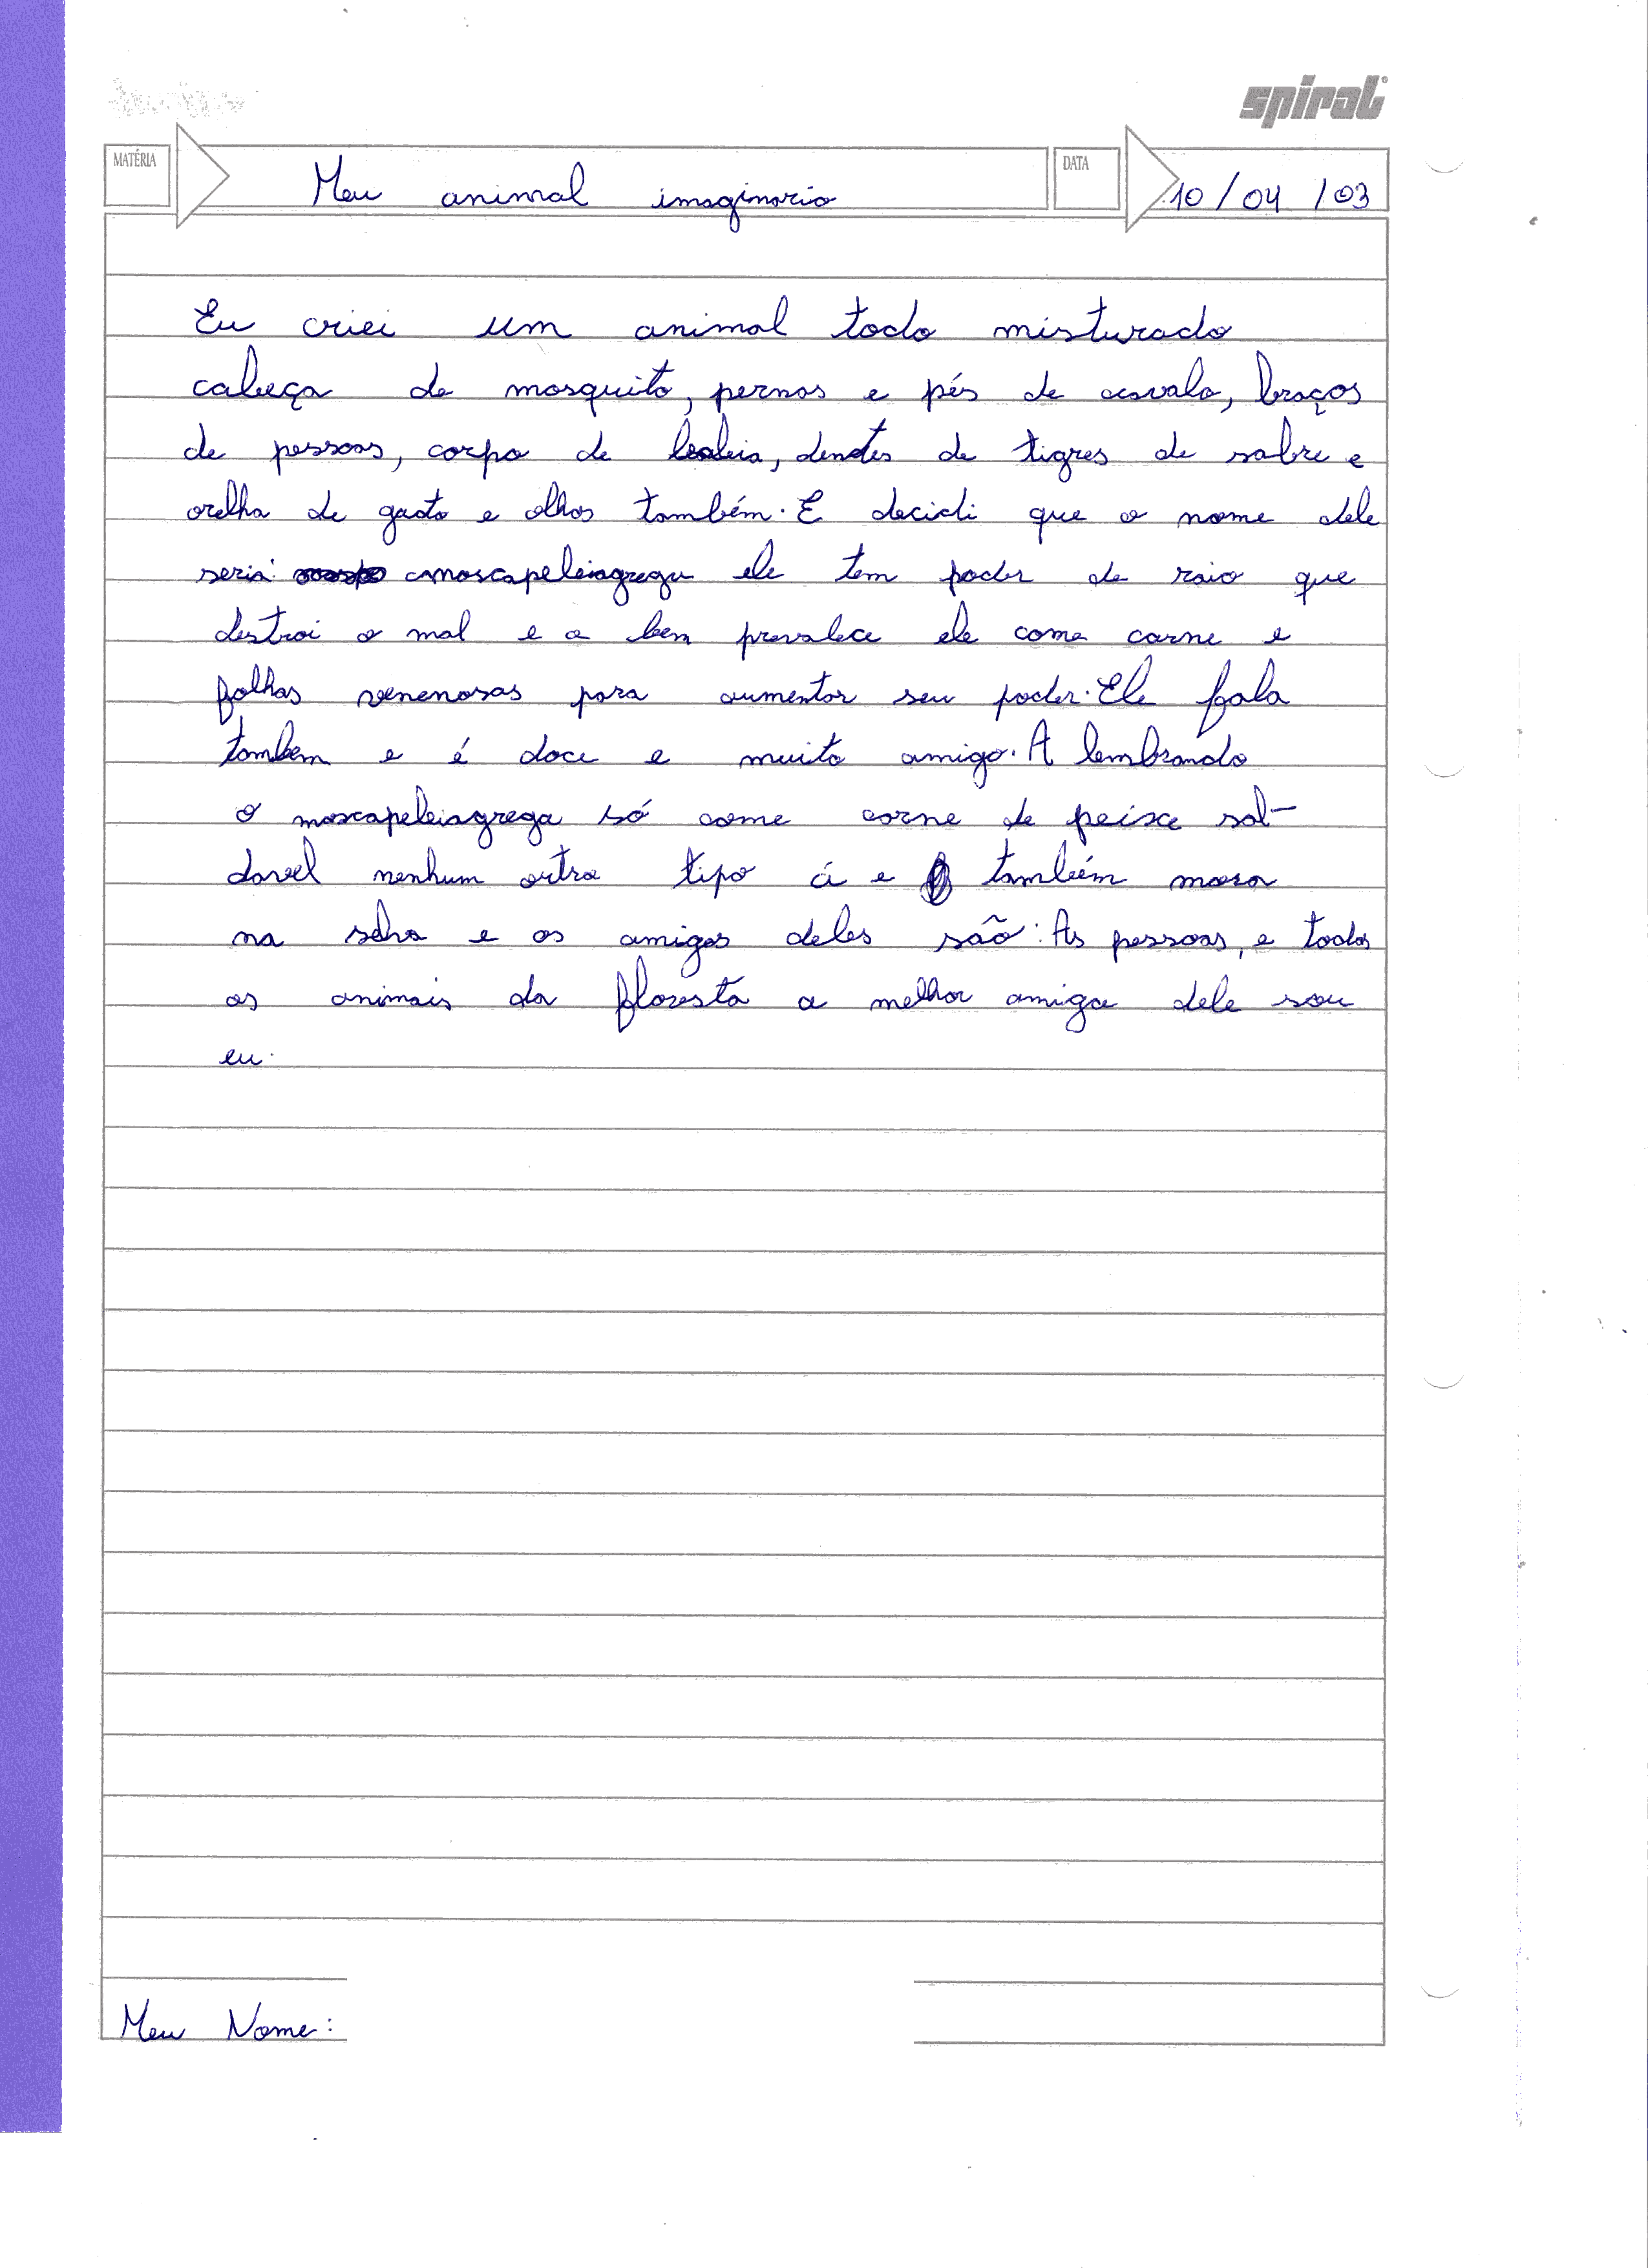 spiral
MATÉRIA Meu animal imaginario DATA 10/04/03
Eu criei um animal todo misturado
cabeça de mosquito, pernas e pés de cavalo, braços
de pessoas, corpo de baleia, dentes de tigres de sabre e
orelha de gato e olhos também. E decidi que o nome dele
seria: ele tem poder de raio que
destroi o mal e o bem prevalece ele come carne e
folhas venenosas para aumentar seu poder. Ele fala
tambem e é doce e muito amigo. A lembrando
o moscapeleiagrega só come carne de peixe sal-
davel nenhum outro tipo á e também mora
na selva e os amigos deles são: As pessoas, e todos
os animais da floresta a melhor amiga dele sou
eu.
Meu Nome: